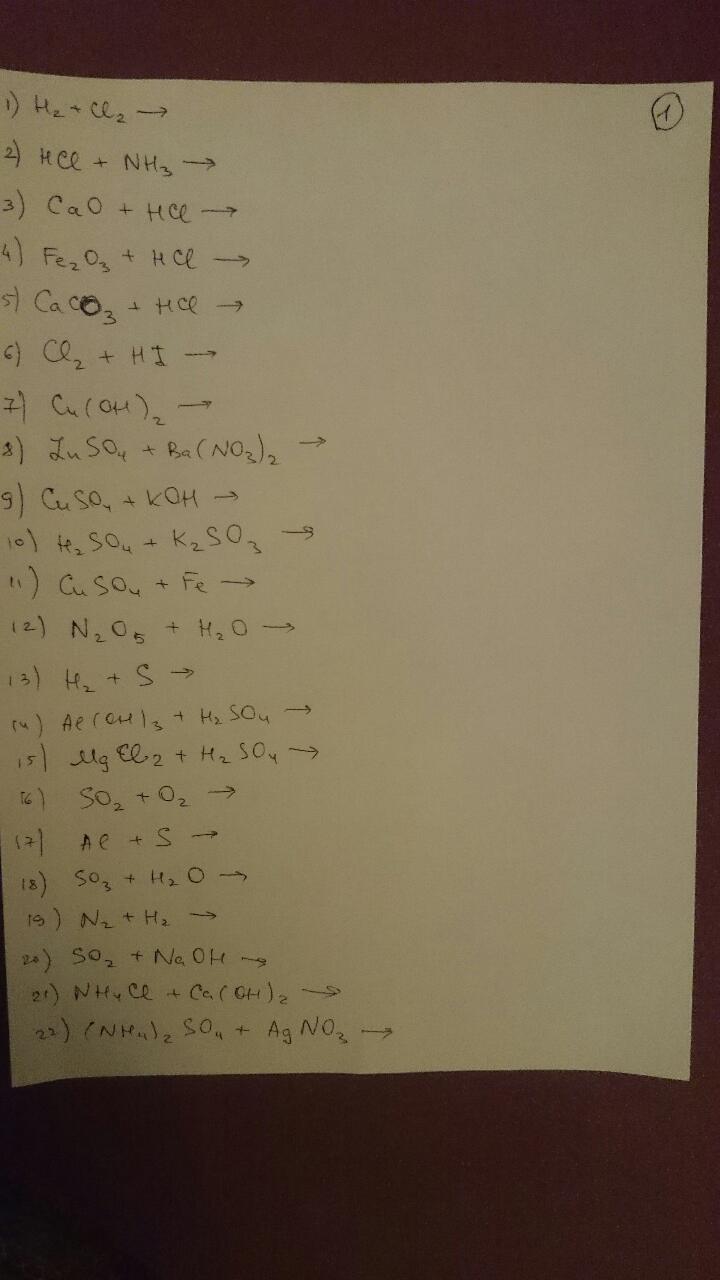 ①
1) H₂ + Cl₂ →
2) HCl + NH₃ →
3) CaO + HCl →
4) Fe₂O₃ + HCl →
5) CaCO₃ + HCl →
6) Cl₂ + HI →
7) Cu(OH)₂ →
8) ZnSO₄ + Ba(NO₃)₂ →
9) CuSO₄ + KOH →
10) H₂SO₄ + K₂SO₃ →
11) CuSO₄ + Fe →
12) N₂O₅ + H₂O →
13) H₂ + S →
14) Al(OH)₃ + H₂SO₄ →
15) MgCl₂ + H₂SO₄ →
16) SO₂ + O₂ →
17) Al + S →
18) SO₃ + H₂O →
19) N₂ + H₂ →
20) SO₂ + NaOH →
21) NH₄Cl + Ca(OH)₂ →
22) (NH₄)₂SO₄ + AgNO₃ →